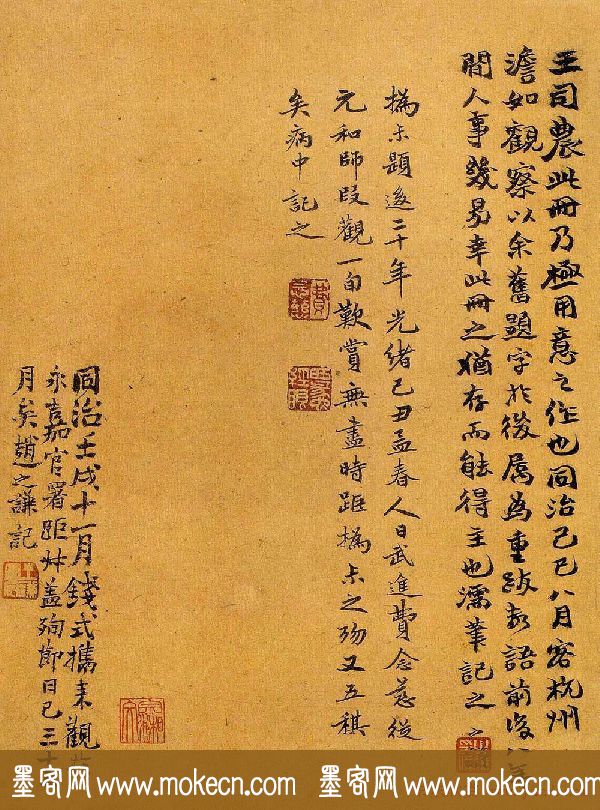 王司農此冊乃極用意之作也同治己巳八月客杭州
澹如觀察以余舊題字於後屬為重跋數語前後八年
間人事幾易幸此冊之猶存而能得主也濡筆記之
撝尗題後二十年光緒己丑孟春人日武進費念慈從
元和師段觀一旬歎賞無盡時距撝尗之殤又五稘
矣病中記之
同治壬戌十一月錢式攜來觀
永嘉官署距艸蓋殉節日已三十
月矣趙之謙記
墨客网 www.mokecn.com 墨客网 www.mokecn.com 墨客网